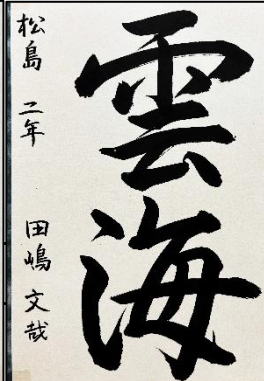 雲海
松島 二年 田嶋 文哉